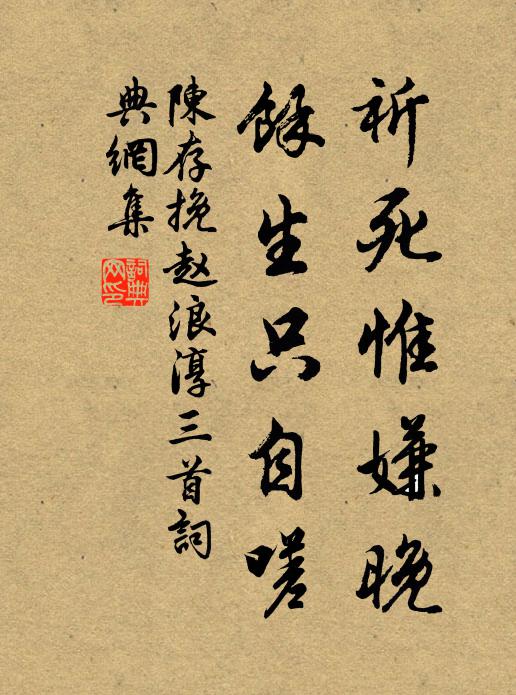 祈死惟嫌晚
餘生只自嗟
陳存挽赵浪淳三首詞
典網集
詞典
网印